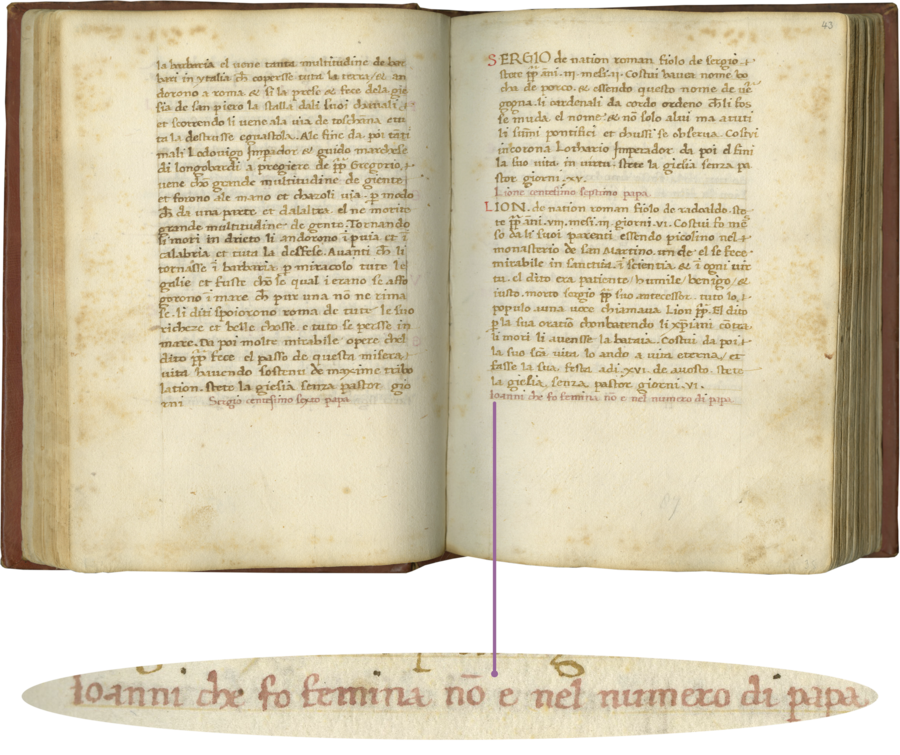 la barbaria el vene tanta multitudine de bar
bari in ytalia ch̄ coperse tuta la terra / & an
dorono a roma & si la prese & fece dela gie
sia de san piero la stalla dali suoi chavali
et scorrendo li vene ala via de toschana e tu
ta la destrusse e guastola. Ale fine da poi tāti
mali Lodovigo Impador & guido marchese
di longobardi a pregiere de pp̄ Gregorio
vene chō grande multitudine de giente
et forono ale mano et chazoli via. p modo
ch̄ da una parte et dalaltra el ne morite
grande multitudine de gente. Tornando
li mori in drieto li andorono i puia et ī
calabria et tuta la desfese. Avanti ch̄ li
tornasse ī barbaria p miracolo tute le
galie et fuste chō le qual i erano se affo
gorono i mare ch̄ pur una nō ne rima
se. li disti spoiorono roma de tute le suo
richeze et belle chosse e tuto se persse in
mare. Da poi molte mirabile opere chel
dito pp̄ fece el passo de questa misera
vita havendo sostenu de maxime tribo
lation. stete la giesia senza pastor gio
rni
Sergio centesimo sexto papa
43
SERGIO de nation roman fiolo de sergio
stete pp̄ ani. iii. mesi. ii. Costui havea nome bo
cha de porco. & essendo questo nome de ve
gogna. li cardenali da cordo ordeno ch̄ li fos
se muda el nome & nō solo alui ma a tuti
li sumi pontifici et chussi se observa. Costui
incorona Lothario Imperador da poi el fini
la suo vita in virtu. stete la giesia senza pa
stor giorni. xv.
Lione centesimo septimo papa
LION. de nation roman fiolo de radoaldo. ste
te pp̄ ani. viii. mesi. iii. giorni. vi. Costui fo me
so dali suoi parenti essendo picolino nel
monasterio de san Martino. un de el se fece
mirabile in sanctita. i scientia & i ogni vir
tu. el dito era patiente / humile / benigo / &
iusto. morto sergio pp̄ suo antecessor. tuto lo
populo a una voce chiamava Lion pp̄. El dito
p la sua oratiō chonbatendo li xp̄iani cōtra
li mori li avensse la bataia. Costui da poi
la suo scā vita lo ando a vita eterna / et
fasse la sua festa adi. xvi. de avosto. stete
la giesia senza pastor giorni. vi.
Ioanni che fo femina nō e nel numero di papa
Ioanni che fo femina nō e nel numero di papa